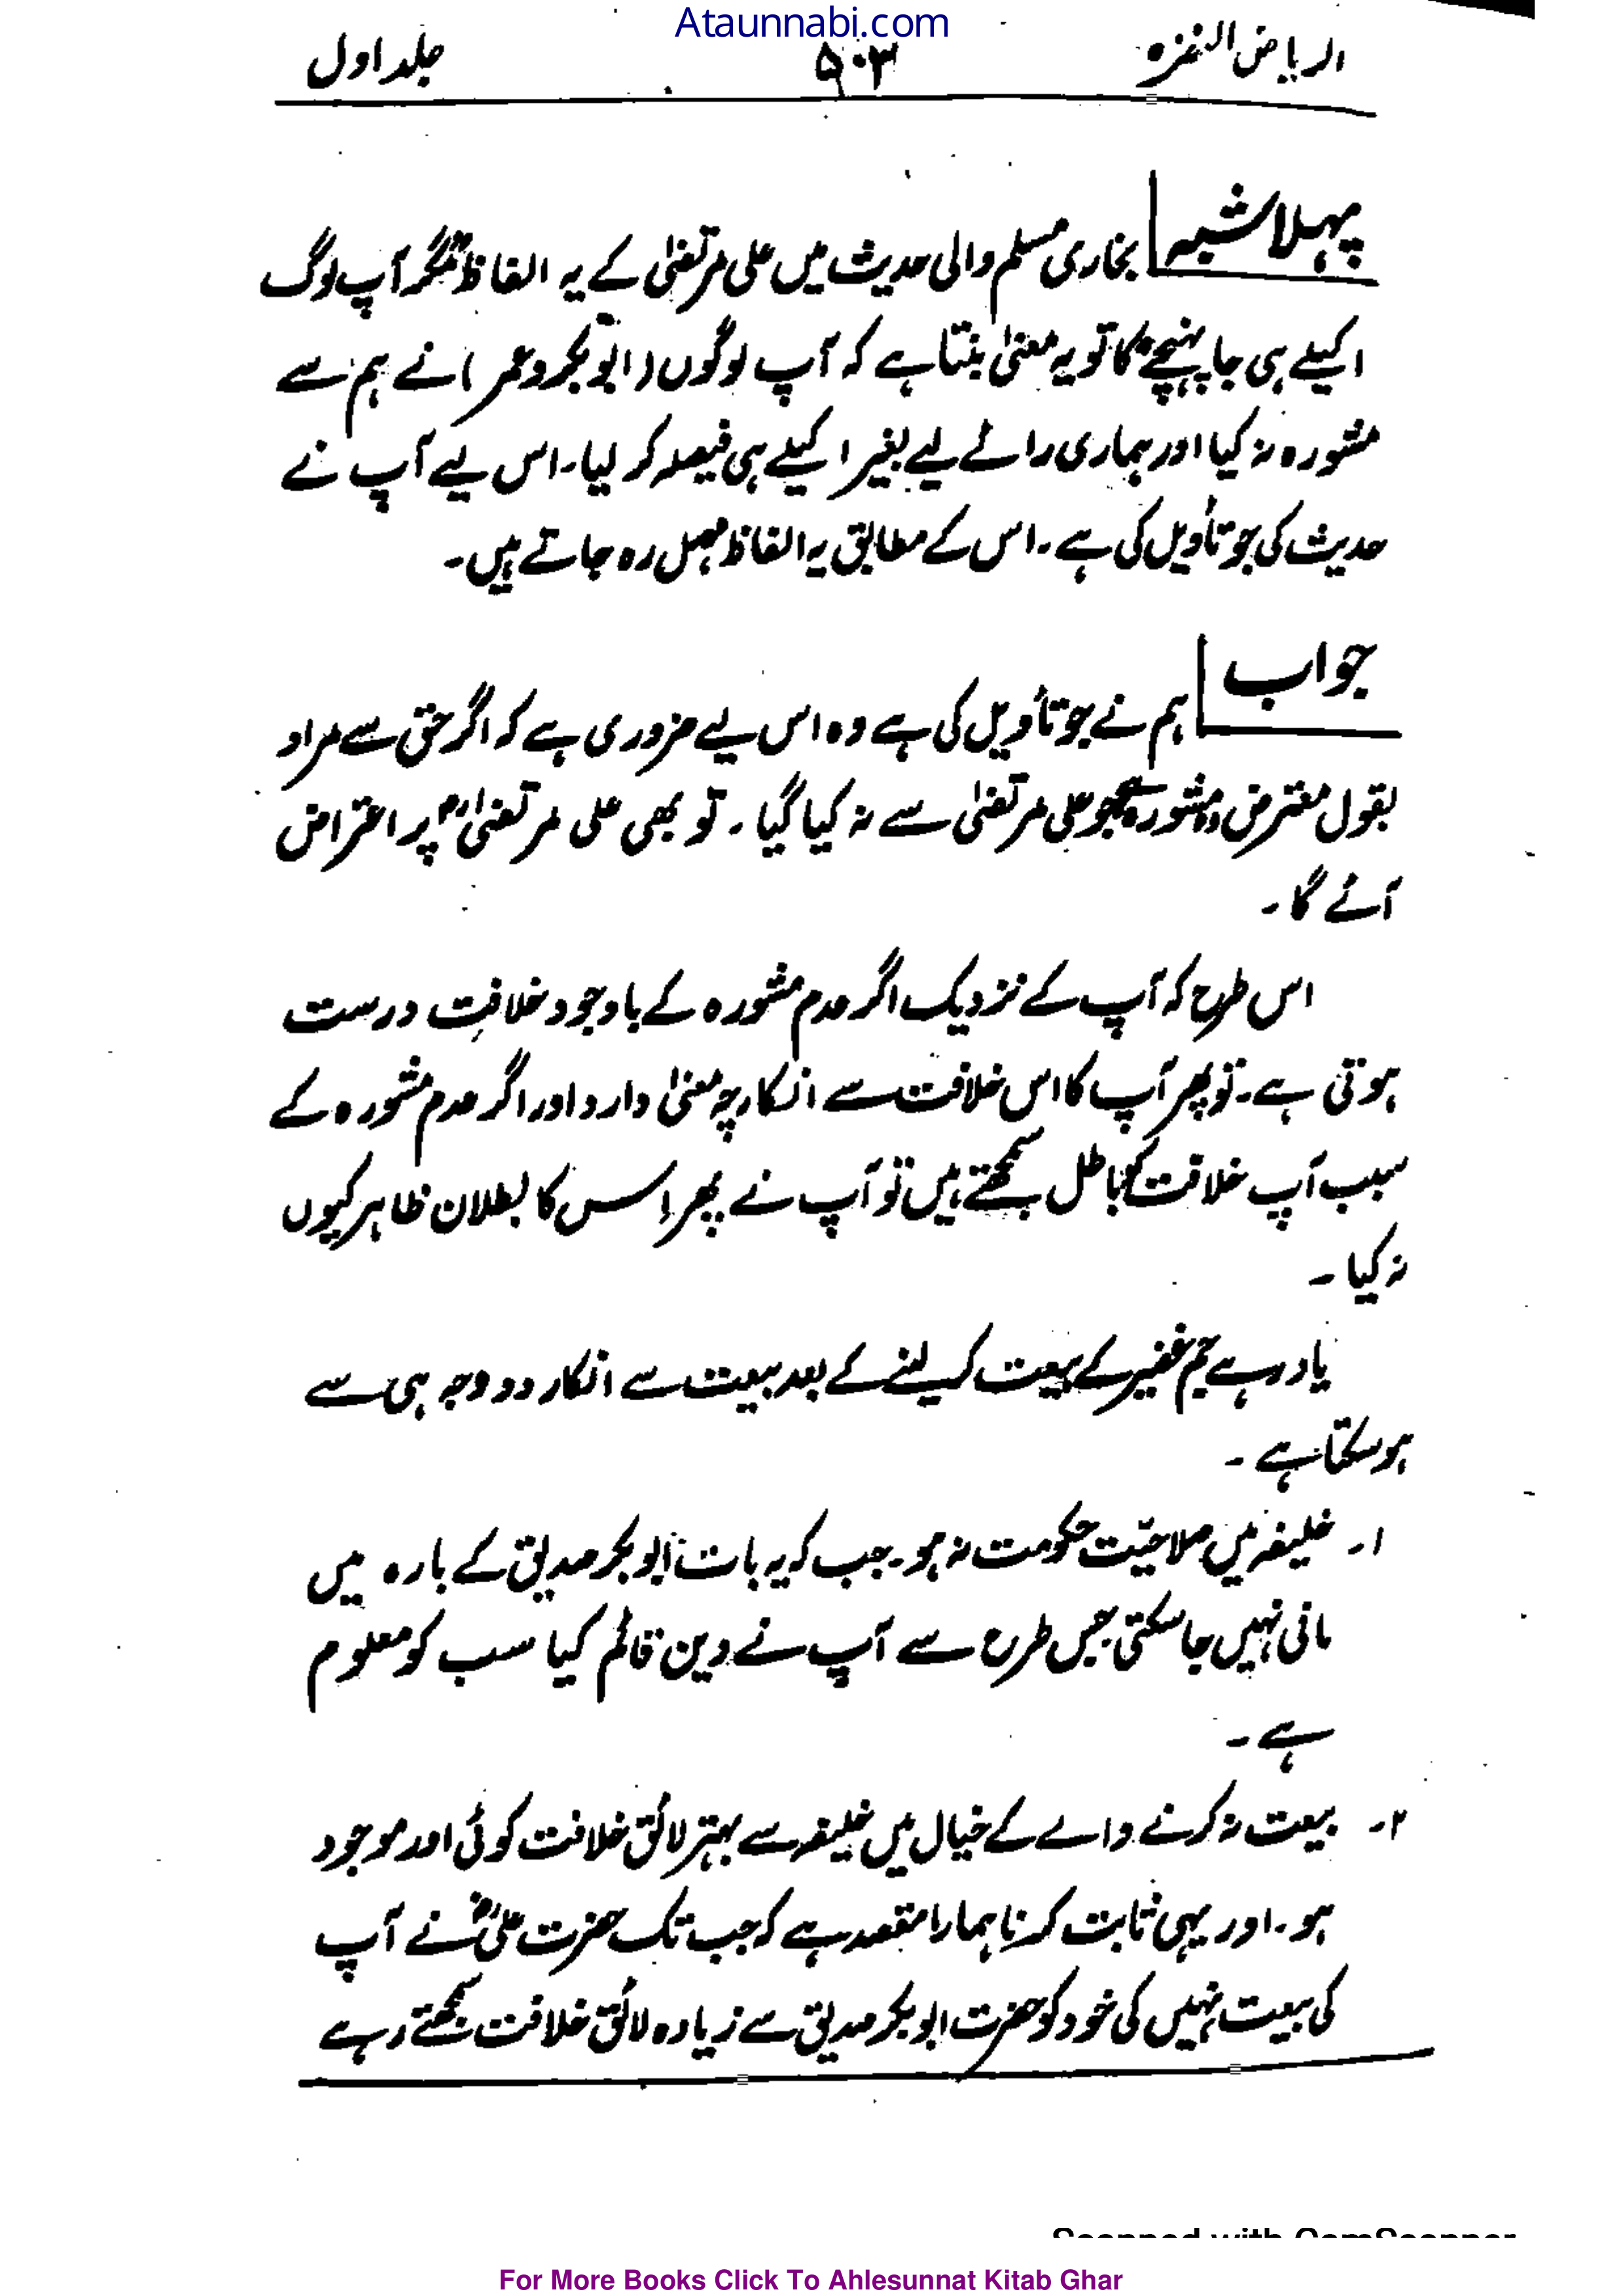 Ataunnabi.com
الریاض النضرہ ۵۰۳ جلد اول
پہلا شبہ
بخاری مسلم والی حدیث میں علی مرتضیٰ کے یہ الفاظ ”مگر آپ لوگ
اکیلے ہی جا پہنچے“ کا تو یہ معنیٰ بنتا ہے کہ آپ لوگوں (ابوبکر و عمر) نے ہم سے
مشورہ نہ کیا اور ہماری رائے لیے بغیر اکیلے ہی فیصلہ کر لیا۔ اس لیے آپ نے
حدیث کی جو تأویل کی ہے۔ اس کے مطابق یہ الفاظ مہمل رہ جاتے ہیں۔
جواب
ہم نے جو تأویل کی ہے وہ اس لیے ضروری ہے کہ اگر حق سے مراد
بقول معترض ”مشورہ“ ہے جو علی مرتضیٰ سے نہ کیا گیا۔ تو بھی علی مرتضیٰؓ پر اعتراض
آئے گا۔
اس طرح کہ آپ کے نزدیک اگر عدم مشورہ کے باوجود خلافت درست
ہوتی ہے۔ تو پھر آپ کا اس خلافت سے انکار چہ معنیٰ دارد اور اگر عدم مشورہ کے
سبب آپ خلافت کو باطل سمجھتے ہیں تو آپ نے پھر اِس کا بطلان ظاہر کیوں
نہ کیا۔
یاد رہے جم غفیر کے بیعت کر لینے کے بعد بیعت سے انکار دو وجہ ہی سے
ہو سکتا ہے۔
۱۔ خلیفہ میں صلاحیّت حکومت نہ ہو۔ جب کہ یہ بات ابوبکر صدیق کے بارہ میں
مانی نہیں جا سکتی جس طرح سے آپ نے دین قائم کیا سب کو معلوم
ہے۔
۲۔ بیعت نہ کرنے والے کے خیال میں خلیفہ سے بہتر لائق خلافت کوئی اور موجود
ہو۔ اور یہی ثابت کرنا ہمارا مقصد ہے کہ جب تک حضرت علیؓ نے آپ
کی بیعت نہیں کی خود کو حضرت ابوبکر صدیق سے زیادہ لائق خلافت سمجھتے رہے
Scanned with CamScanner
For More Books Click To Ahlesunnat Kitab Ghar